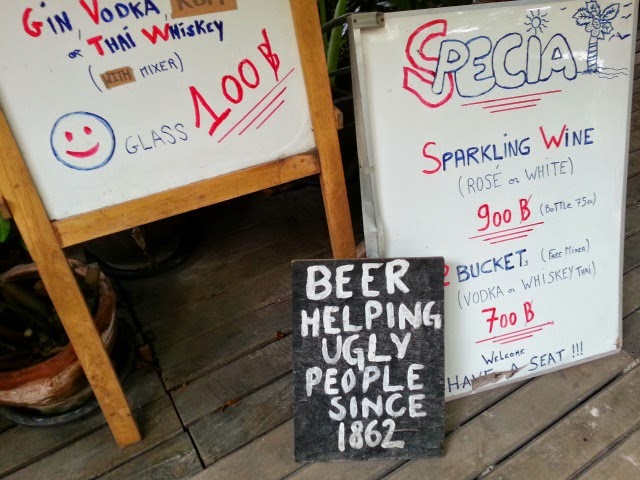 GIN, VODKA, RUM
OR THAI WHISKEY
(WITH MIXER)
GLASS 100 ฿
SPECIAL
SPARKLING WINE
(ROSÉ OR WHITE)
900 ฿ (BOTTLE 75cl)
2 BUCKETS (FREE MIXER)
(VODKA OR WHISKEY THAI)
700 ฿
Welcome
HAVE A SEAT !!!
BEER
HELPING
UGLY
PEOPLE
SINCE
1862